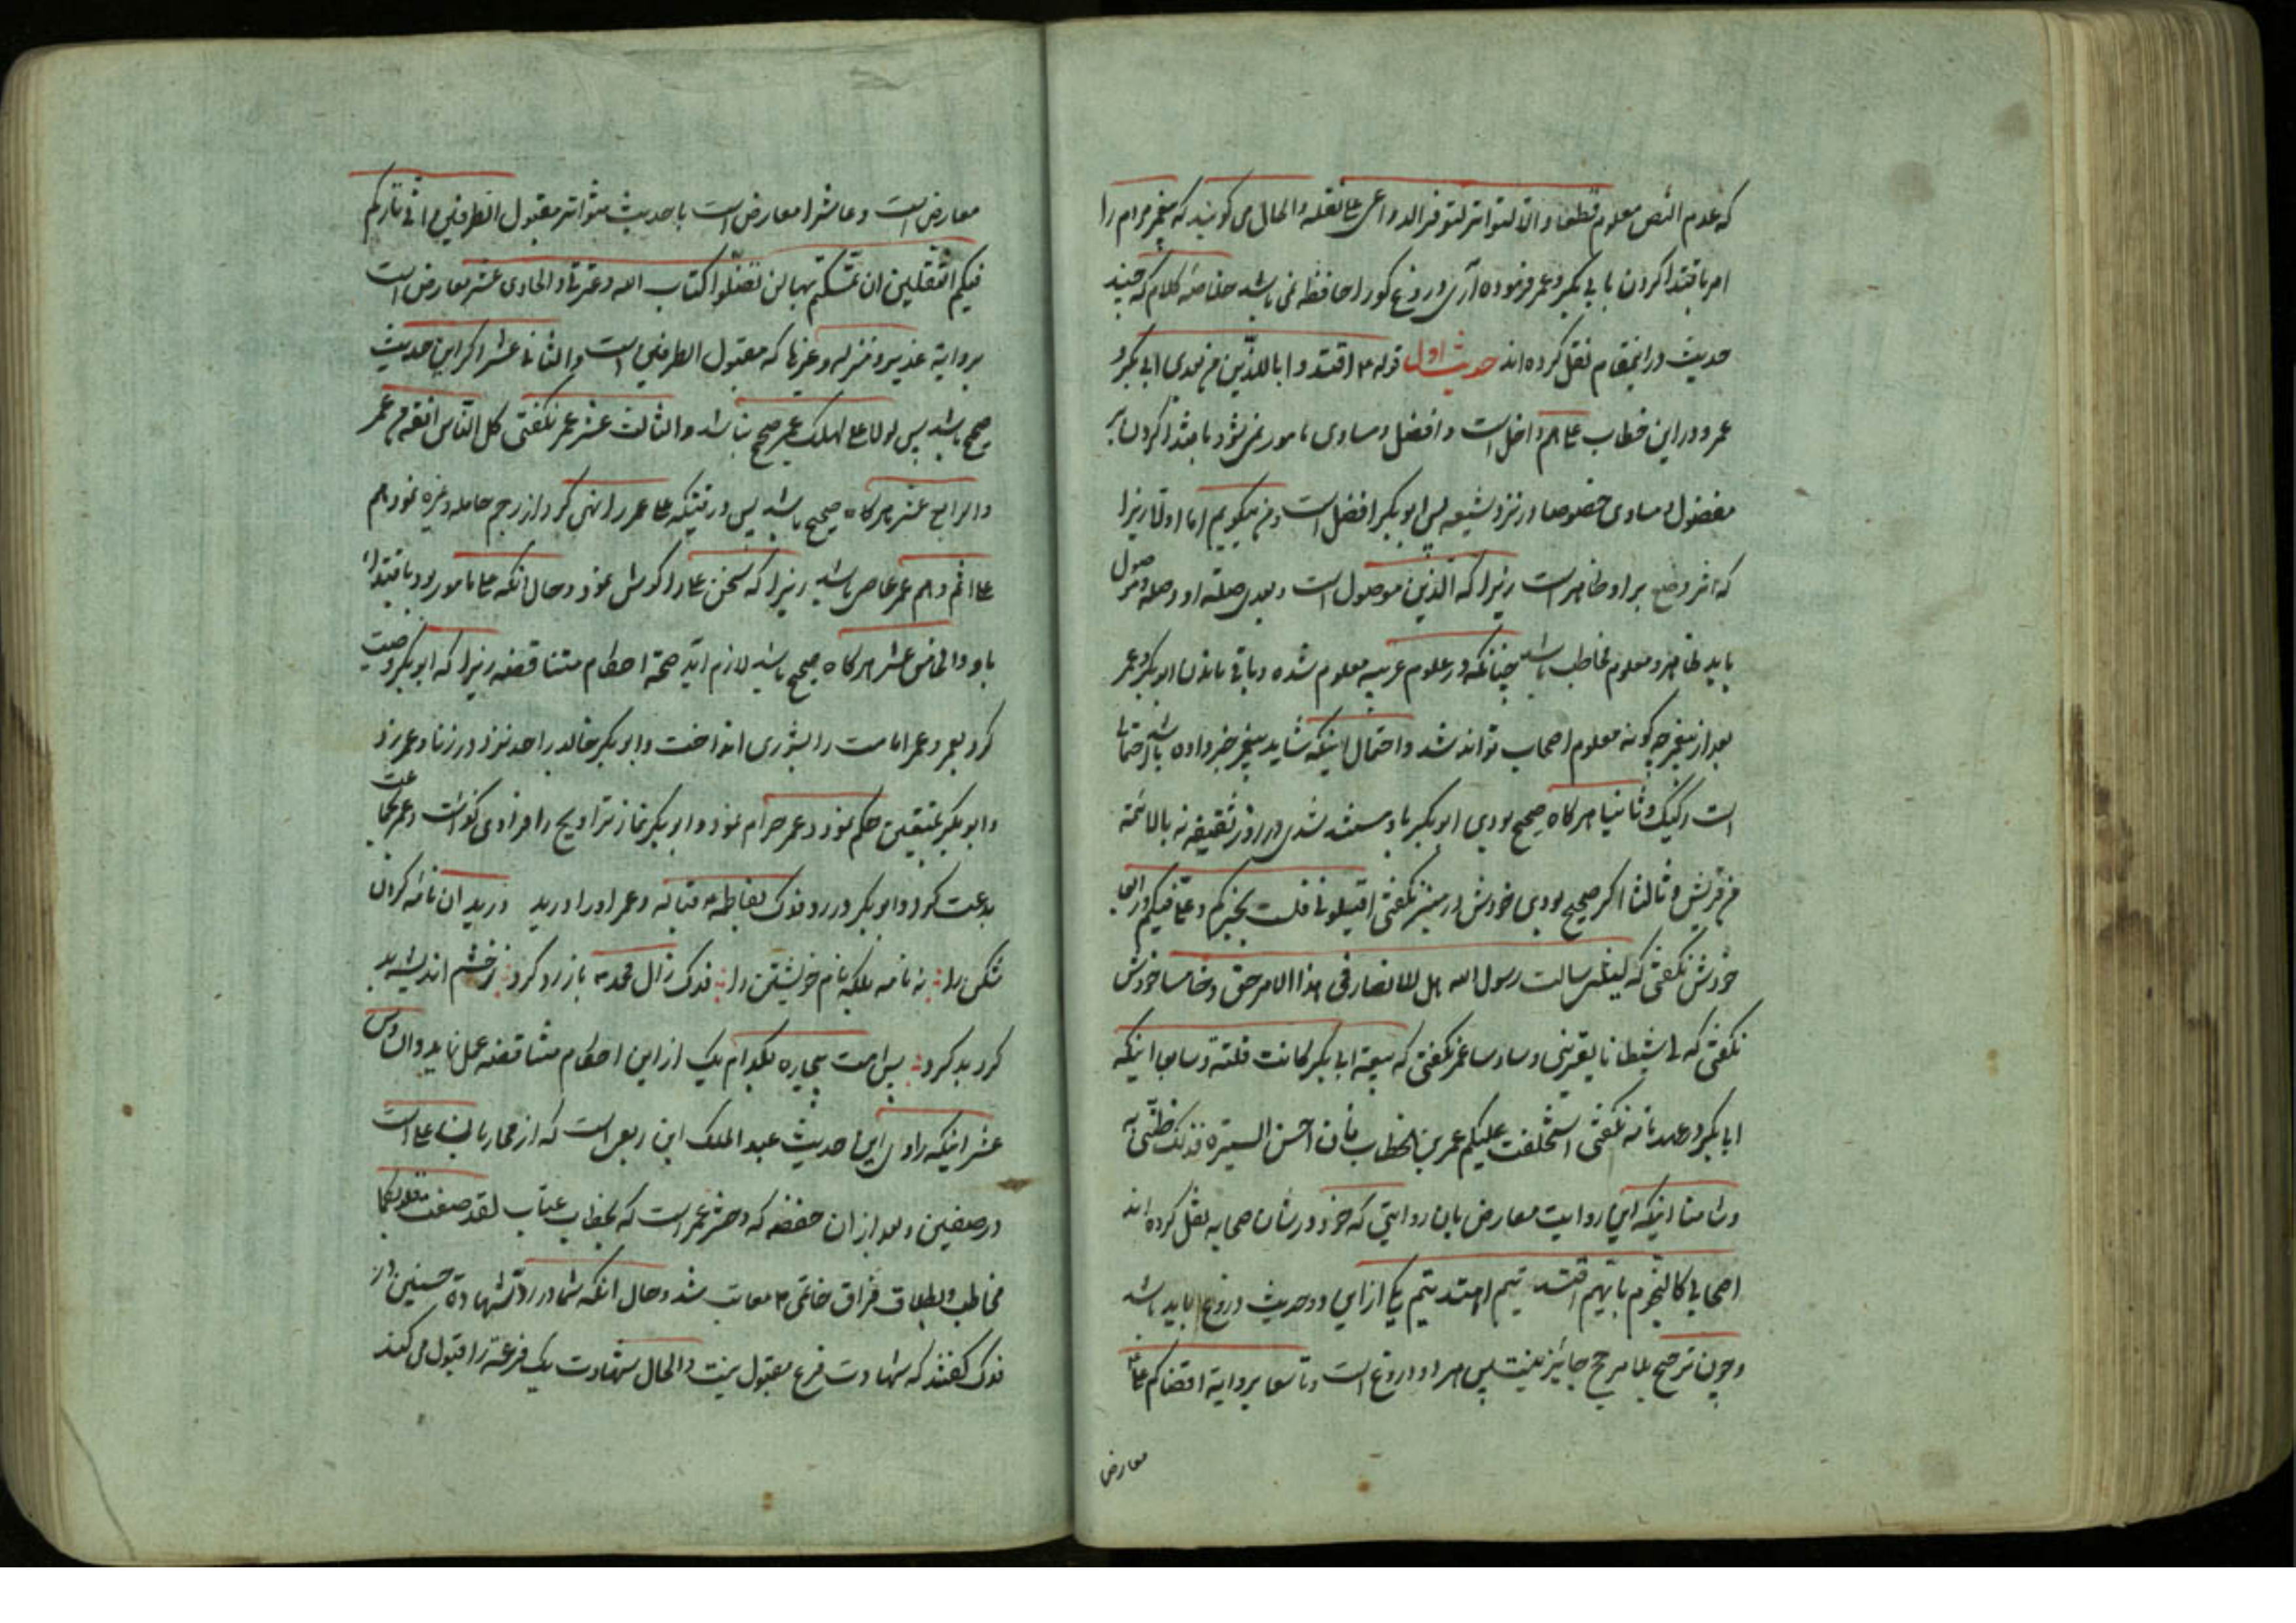 که عدم النص معلوم قطعا و الا لتواتر لتوفر الدواعی علی نقله والحال می گویند که پیغمبر مردم را
امر باقتدا کردن بابی بکر و عمر فرموده آری دروغ گو را حافظه نمی باشد خلاصه کلام که چند
حدیث دراینمقام نقل کرده اند حدیث اول قوله اقتدوا باللذین من بعدی ابی بکر و
عمر و در این خطاب علی هم داخل است و افضل و مساوی مامور نمی شود باقتدا کردن بر
مفضول و مساوی خصوصا در نزد شیعه پس ابو بکر افضل است و من میگویم اما اولا زیرا
که اثر وضع بر او ظاهر است زیرا که الذین موصول است و بعدی صلة او و صله موصول
باید ظاهر و معلوم مخاطب باشد چنانکه در علوم عربیه معلوم شده و باقی ماندن ابو بکر و عمر
بعد از پیغمبر چگونه معلوم اصحاب تواند شد و احتمال اینکه شاید پیغمبر خبر داده باشد احتمال
است رکیک و ثانیا هر کاه صحیح بودی ابو بکر باو مستند شدی در روز ثقیفه نه بالائمة
من قریش و ثالثا اکر صحیح بودی خودش در منبر نکفتی اقیلونی فلست بخیرکم و علی فیکم و رابعا
خودش نکفتی که لیتنی سالت رسول الله هل للانصار فی هذا الامر حق و خامسا خودش
نکفتی که لی شیطانا یعترینی و سادسا عمر نکفتی که بیعة ابی بکر کانت فلتة و سابعا اینکه
ابا بکر در عهد نامه نکفتی استخلفت علیکم عمر بن الخطاب فان احسن السیرة فذلک ظنی به
و ثامنا اینکه این روایت معارض بان روایتی که خود در شان صحابه نقل کرده اند
اصحابی کالنجوم بایهم اقتدیتم اهتدیتم یکی از این دو حدیث دروغ باید باشد
و چون ترجیح بلا مرجح جایز نیست پس هر دو دروغ است و تاسعا بروایة اقضاکم علی
معارض
معارض است و عاشرا معارض است با حدیث متواتر مقبول الطرفین انی تارکم
فیکم الثقلین ان تمسکتم بهما لن تضلوا کتاب الله و عترتی و الحادی عشر معارض است
بروایة غدیر و منزله و غیرها که مقبول الطرفین است و الثانی عشر اکر این حدیث
صحیح باشد پس لولا علی لهلک عمر صحیح نباشد و الثالث عشر عمر نکفتی کل الناس افقه من عمر
و الرابع عشر هر کاه صحیح باشد پس در وقتیکه علی عمر را نهی کرد از رجم حامله و غیره نمود هم
علی اثم و هم عمر عاصی باشد زیرا که سخن علی را کوش نمود و حال آنکه علی مامور بود باقتداء
باو و الخامس عشر هر کاه صحیح باشد لازم اید صحة احکام متناقضه زیرا که ابو بکر وصیت
کرد بعمر و عمر امامت را بشوری انداخت و ابو بکر خالد را حد نزد در زنا و عمر زد
و ابو بکر بمتعتین حکم نمود و عمر حرام نمود و ابو بکر نماز تراویح را فرادی کذاشت و عمر بجماعت
بدعت کرد و ابو بکر در رد فدک بفاطمه قباله و عمر او را درید درید ان نامه کران
شکن را نه نامه بلکه نام خویشتن را فدک ز ال محمد باز رد کرد ز خشم
کرد بد کرد پس امت بیچاره بکدام یک از این احکام متناقضه عمل نماید و السادس
عشر اینکه راوی این حدیث عبد الملک ابن ربعی است که از محاربان علی است
در صفین و بعد از ان حفصه که دختر عمر است که بخطاب عتاب لقد صغت قلوبکما
مخاطب و بطلاق فراق خاتمی معاتب شد و حال انکه شما در رد شهادة حسنین در
فدک کفتند که شهادت فرع مقبول نیست و الحال شهادت یک فرعه را قبول می کنند